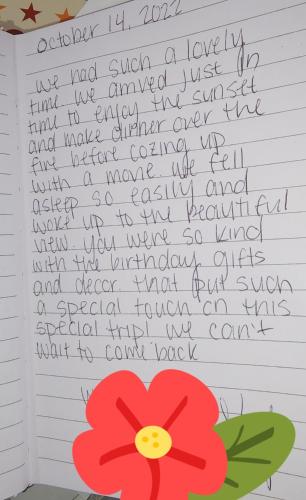 October 14, 2022
We had such a lovely
time. We arrived just in
time to enjoy the sunset
and make dinner over the
fire before cozing up
with a movie. We fell
asleep so easily and
woke up to the beautiful
view. You were so kind
with the birthday gifts
and decor. That put such
a special touch on this
special trip! We can't
wait to come back